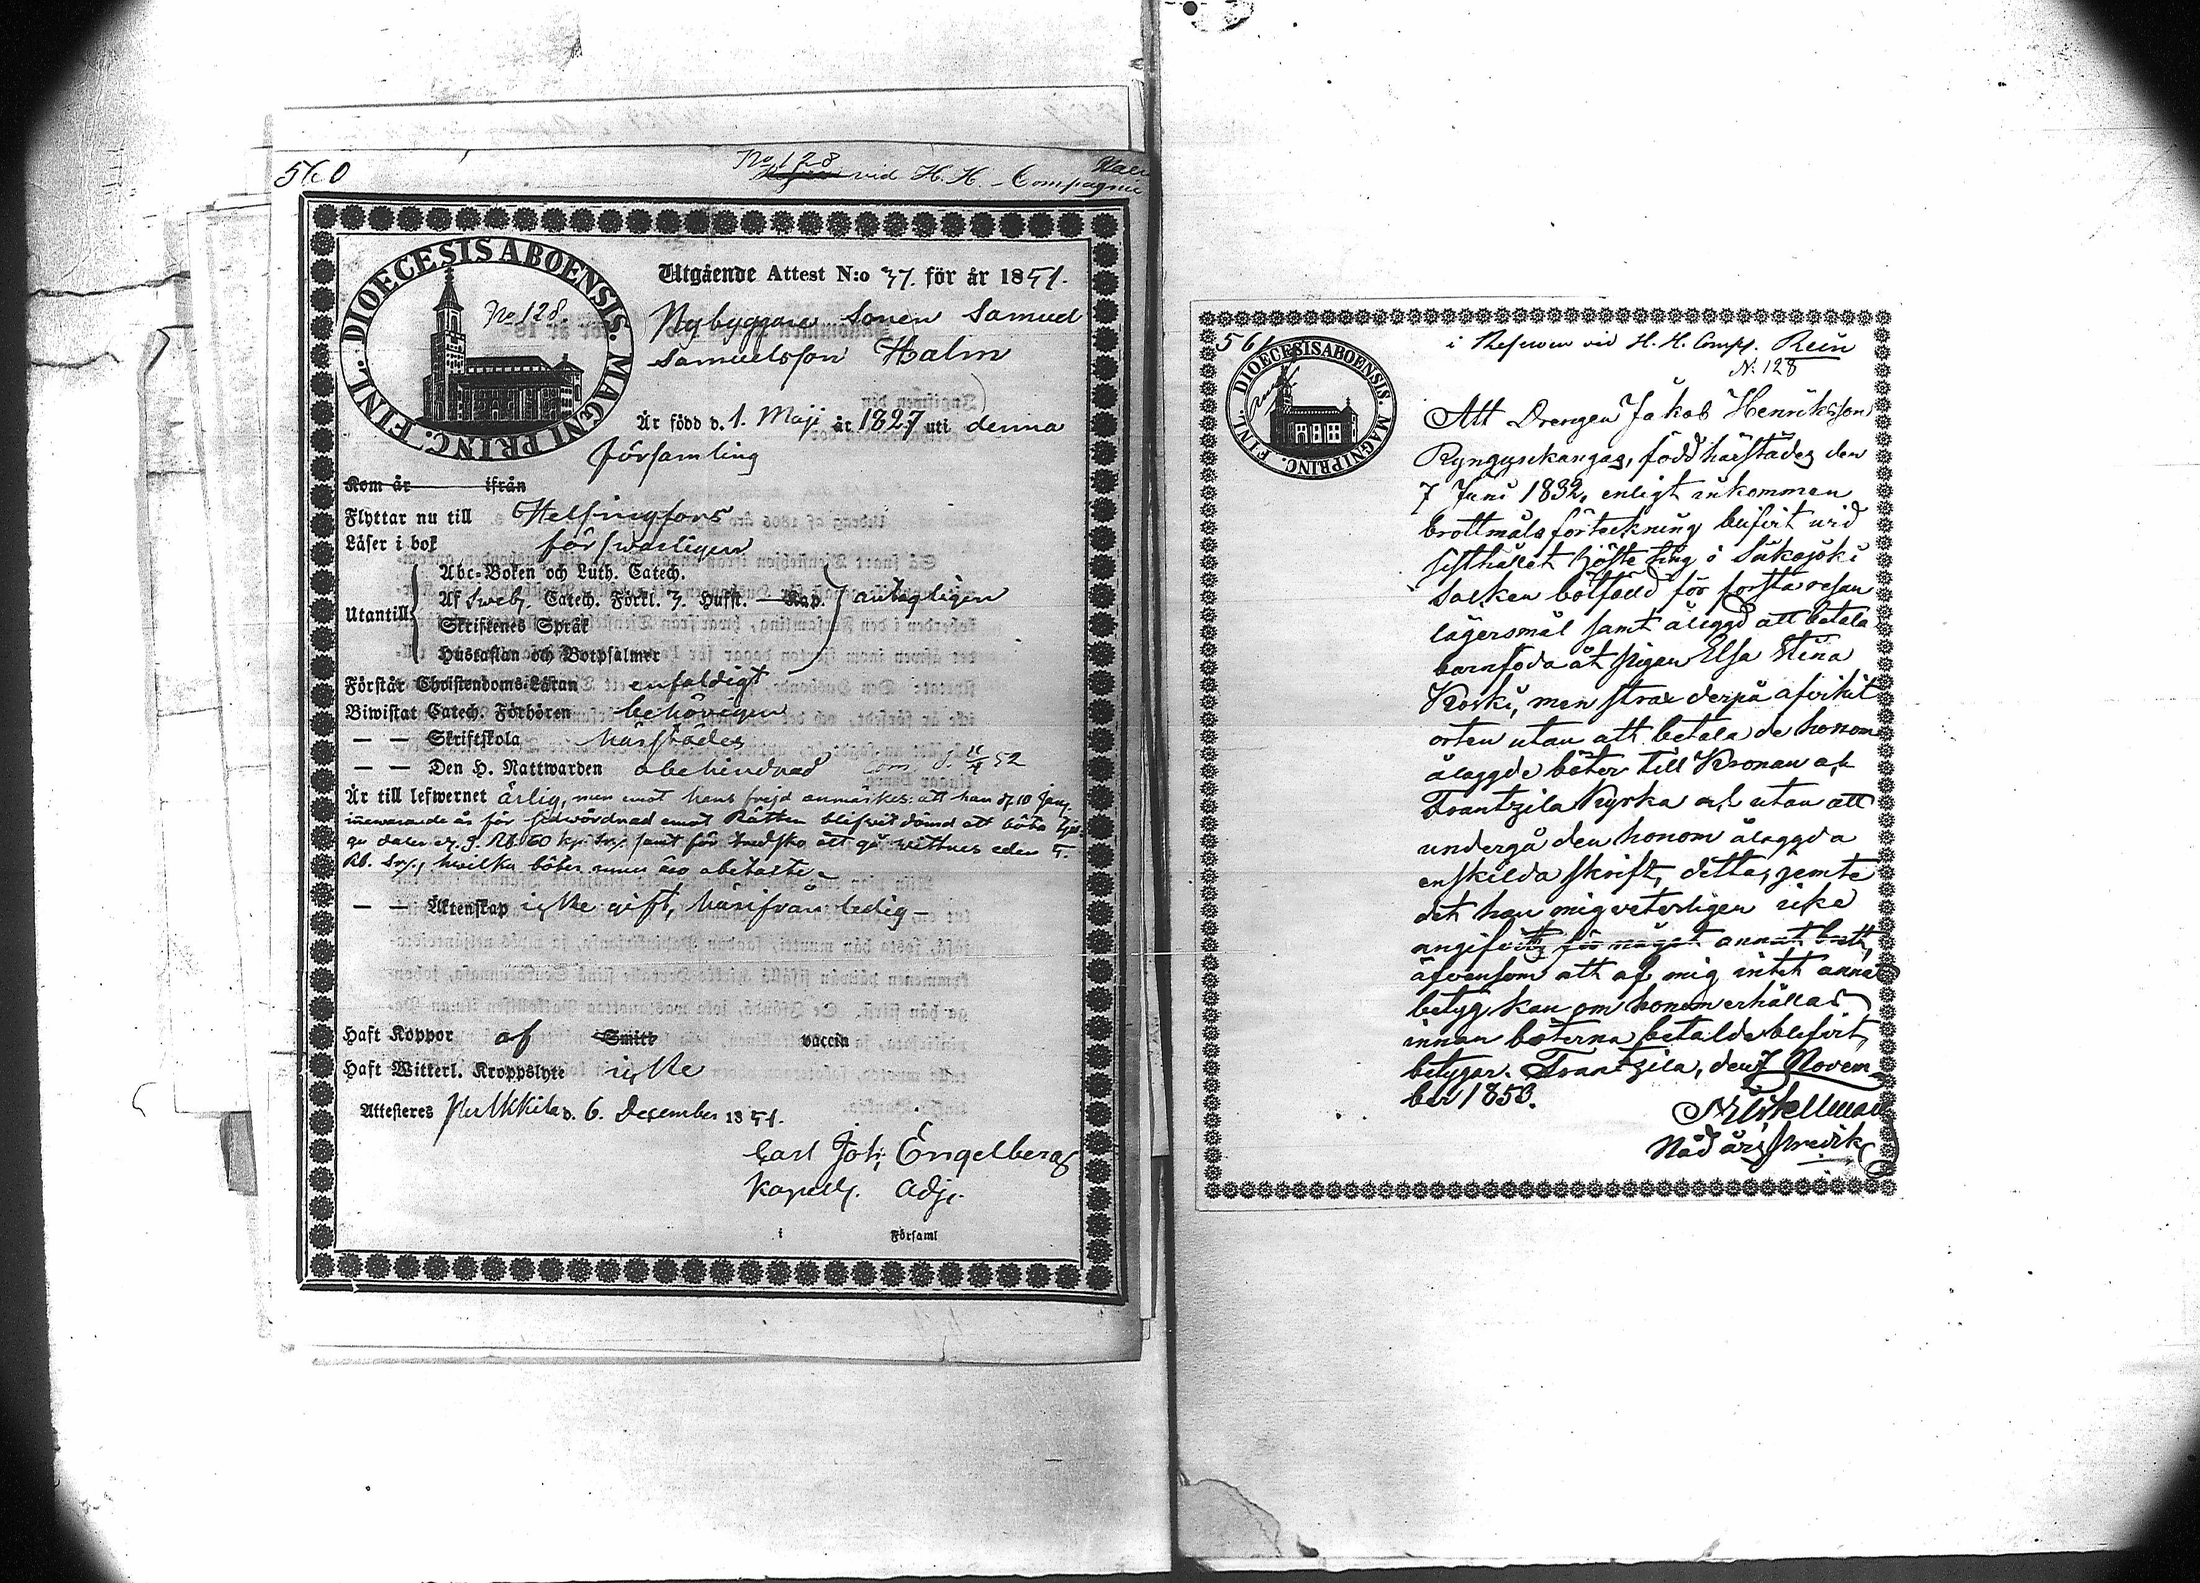 560
No 128
vid H. H. Compagnie
DIOECESIS ABOENSIS. MAGNI PRINC. FINL.
No 128.
Utgående Attest N:o 37. för år 1851.
Nybyggare Sonen Samuel
Samuelsson Halm
Är född d. 1. Maji år 1827 uti denna
församling
Kom år ifrån
Flyttar nu till Helsingfors
Läser i bok försvarligen
Utantill
Abc-Boken och Luth. Catech.
Af Sweb. Catech. Förkl. 3. Hufst. Kap. antagligen
Skriftenes Språk
Hustaflan och Botpsalmer
Förstår Christendoms-Läran enfaldigt
Biwistat Catech. Förhören behörigen
— — Skriftskola härstädes
— — Den H. Nattwarden obehindrad
Är till lefwernet ärlig, men emot hans frejd anmärkes: att han d. 10 Jan.
innevarande år för sidwördnad emot Rätten blifvit dömd att böta tju-
gu daler eg. 9. Rb. 60 kop. Srr. samt för tredsko att gå vittnes eden 5.
Rb. Srr., hwilka böter ännu äro obetalte.
— — Äktenskap icke gift, härifrån ledig —
Haft Koppor af Smitt vaccin
Haft Witterl. Kroppslyte icke
Attesteres Pulkkila d. 6. December 1851.
Carl Joh. Engelberg
Kapells. Adj.
i Församl
561
i Reserven vid H. H. Comp. Rein
N. 128
DIOECESIS ABOENSIS. MAGNI PRINC. FINL.
Att Drengen Jakob Henriksson
Ryngysekangas, född härstädes den
7 Juni 1832, enligt inkommen
brottmåls förteckning blifvit vid
sisthållet Höste ting i Siikajoki
Socken bötfälld för första resan
lägersmål samt ålaggd att betala
barnföda åt pigan Elsa Stina
Koski, men strax derpå afvikit
orten utan att betala de honom
ålaggde böter till Kronan och
Frantzila Kyrka och utan att
undergå den honom ålaggda
enskilda skrift, detta, jemte
det han mig veterligen icke
angifvits för något annat brott,
äfvensom att af mig intet annat
betyg kan om honom erhållas
innan böterna betalde blifvit,
betygar. Frantzila, den 7 Novem-
ber 1850.